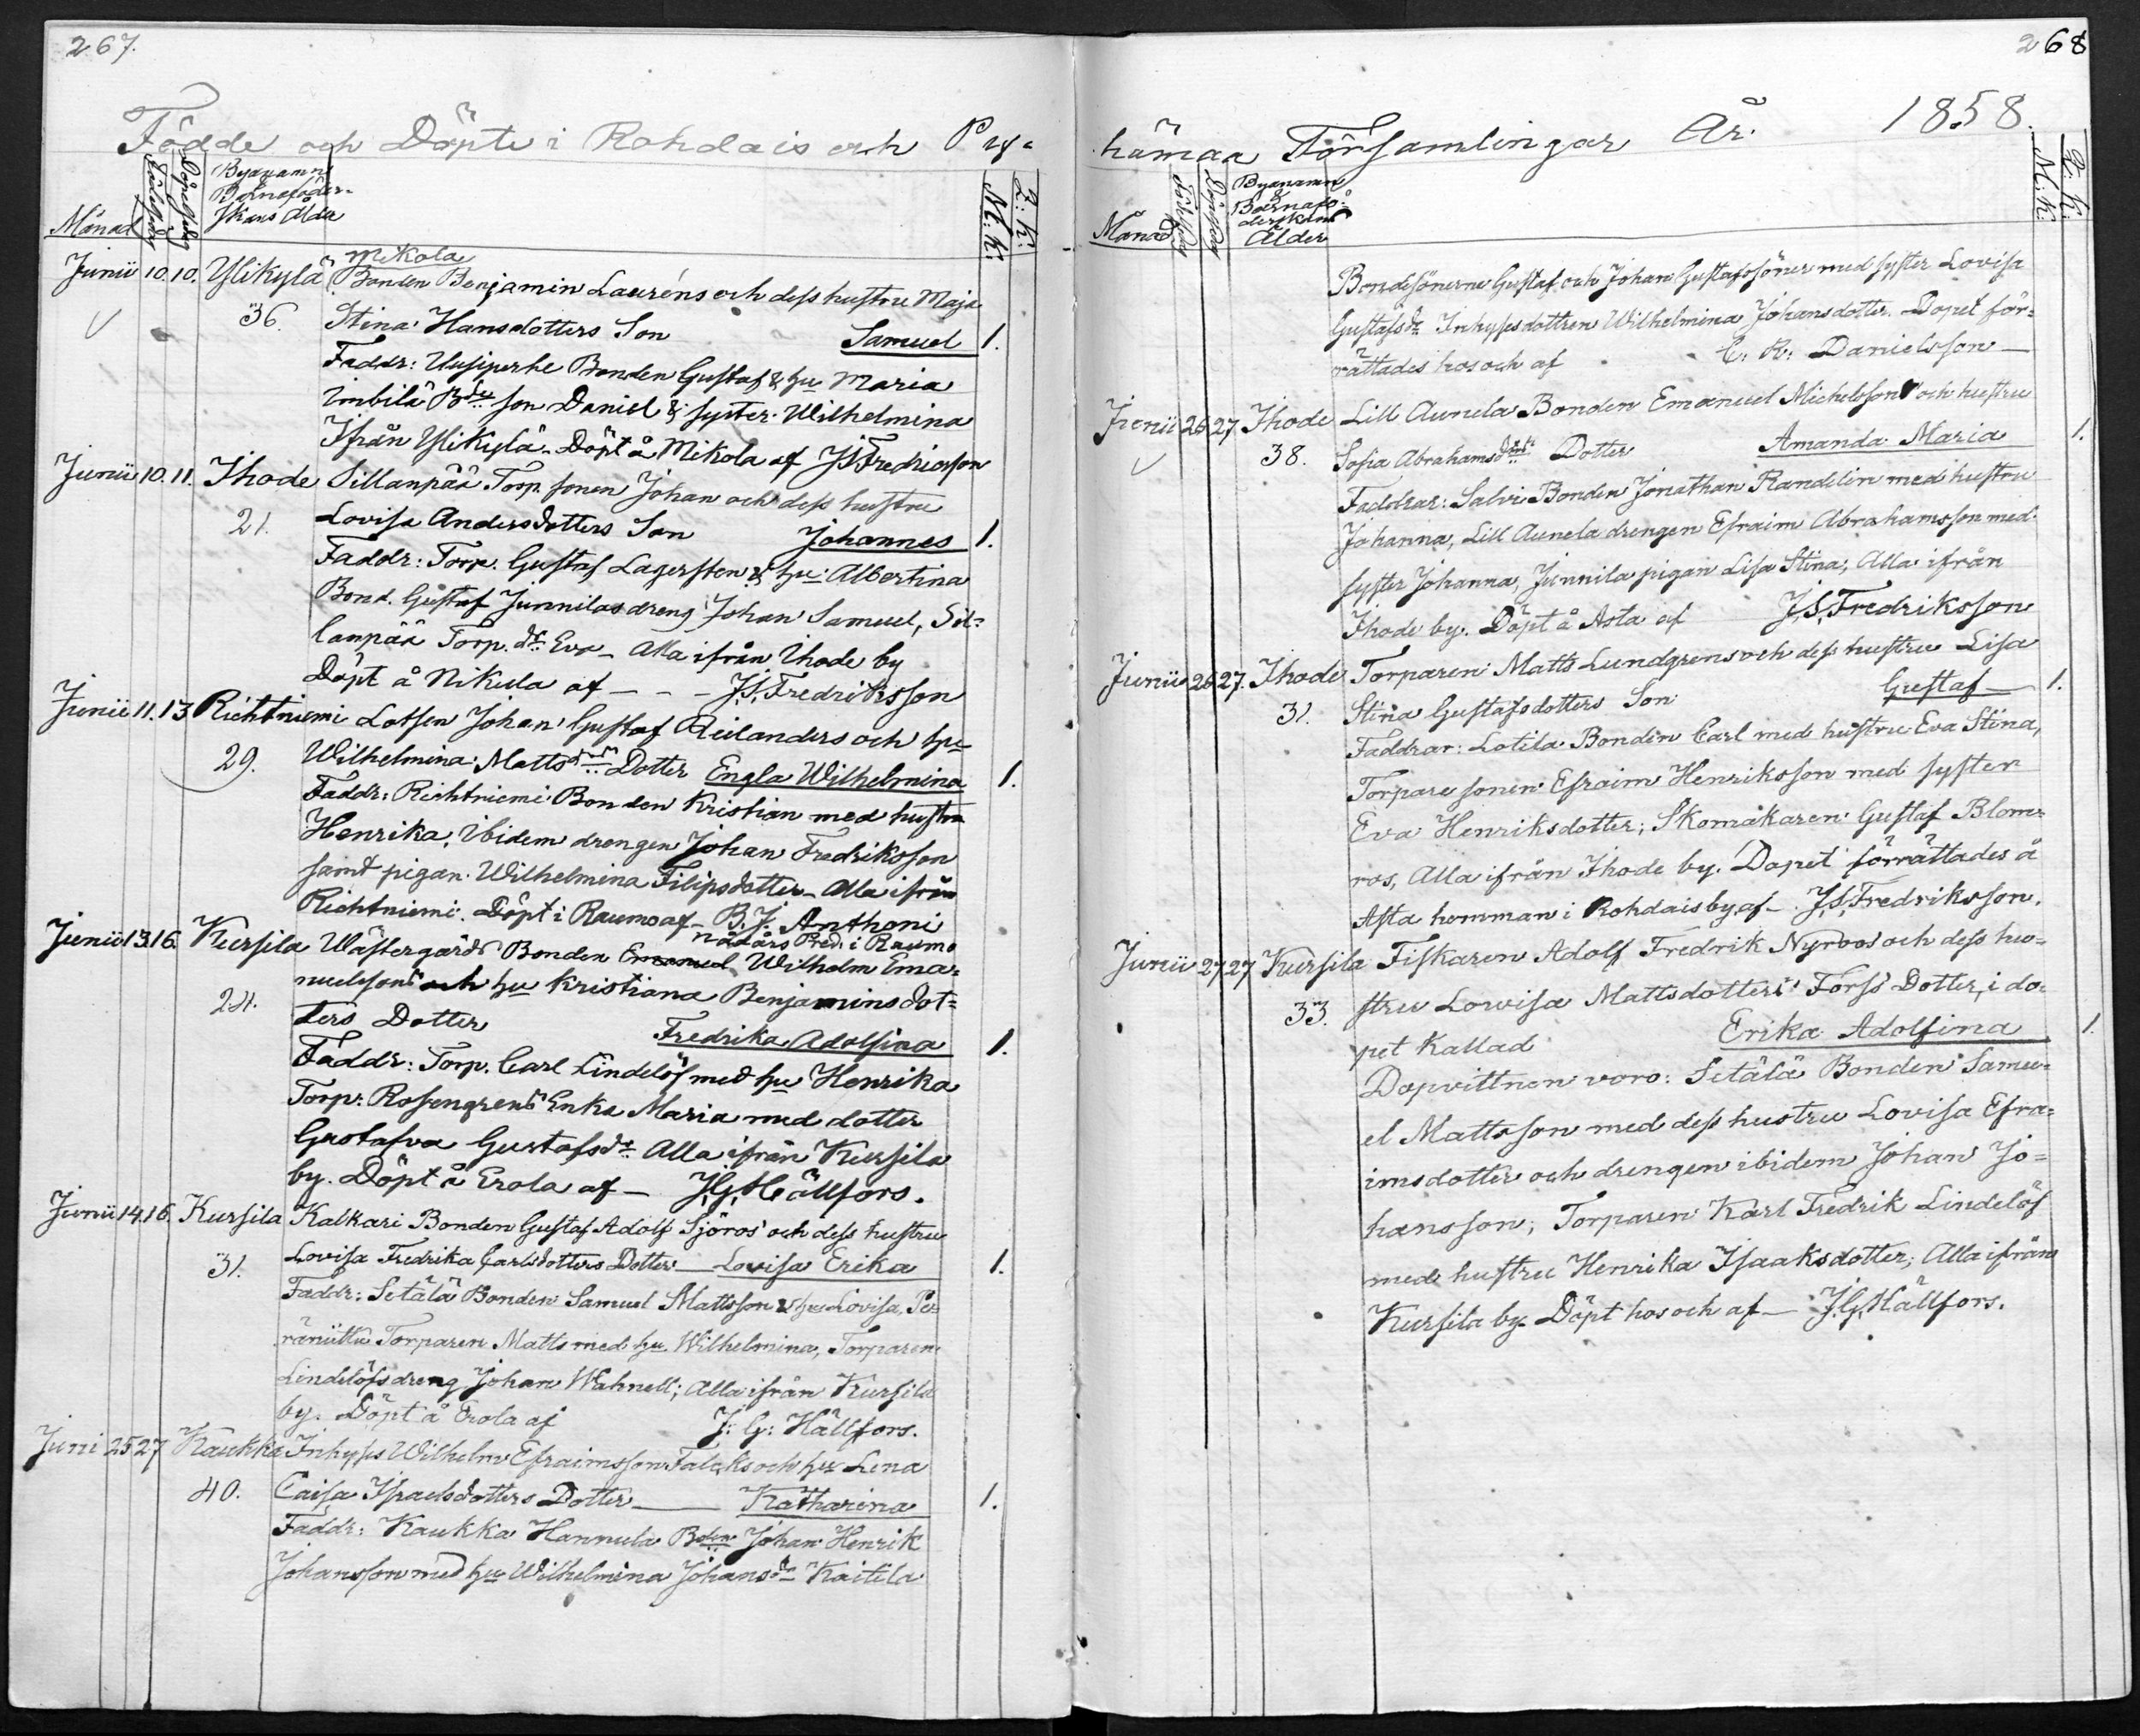 267.
Födde och Döpte i Rohdais och Pyy-
Månad
Födelsedag
Döpelsedag
Byanamn
Barnaföder-
skans Ålder
M: K:
Q: K:
Mikola
Junii 10. 10. Ylikylä Bonden Benjamin Lauréns och dess hustru Maja
36. Stina Hansdotters Son Samuel 1.
Faddr: Uusiperhe Bonden Gustaf & hu Maria
Imbilä Bdes son Daniel & syster Wilhelmina
Ifrån Ylikylä. Döpt å Mikola af J.S. Fredriksson
Junii 10. 11. Ihode Sillanpää Torp. sonen Johan och dess hustru
21. Lovisa Andersdotters Son Johannes 1.
Faddr: Torp. Gustaf Lagersten & hu Albertina
Bond. Gustaf Junnilas dreng Johan Samuel, Sil-
lanpää Torp. dr Eva - Alla ifrån Ihode by
Döpt å Nikula af - - - J.S. Fredriksson
Junii 11. 13 Richtniemi Lotsen Johan Gustaf Reilanders och hu
29. Wilhelmina Mattsdrs Dotter Engla Wilhelmina 1.
Faddr: Richtniemi Bonden Kristian med hustru
Henrika, ibidem drengen Johan Fredriksson
samt pigan Wilhelmina Filipsdotter - Alla ifrån
Richtniemi. Döpt i Raumo af - B. J. Anthoni
nådårs Pred. i Raumo
Junii 13. 16. Kursila Wästergårds Bonden Emanuel Wilhelm Ema-
nuelssons och hu Kristiana Benjamins dot-
24. ters Dotter Fredrika Adolfina 1.
Faddr: Torp. Carl Lindelöf med hu Henrika
Torp: Rosengrens Enka Maria med dotter
Gustafva Gustafsdr Alla ifrån Kursila
by. Döpt å Erola af - J.G. Hällfors.
Junii 14. 16. Kursila Kalkari Bonden Gustaf Adolf Sjöros' och dess hustru
31. Lovisa Fredrika Carlsdotters Dotter - Lovisa Erika 1.
Faddr: Setälä Bonden Samuel Mattsson & hu Lovisa, Pe-
räniittu Torparen Matts med hu Wilhelmina, Torparen
Lindelöfs dreng Johan Wahnell; Alla ifrån Kursila
by. Döpt å Erola af J: G: Hällfors.
Juni 25 27 Kaukka Inhyses Wilhelm Efraimsson Falcks och hu Lena
40. Caisa Israelsdotters Dotter - Katharina 1.
Faddr: Kaukka Hannula Bden Johan Henrik
Johansson med hu Wilhelmina Johansdr Kaitila
268
hämaa Församlingar År 1858.
Månad
Födelsedag
Döpelsedag
Byanamn
&
Barnafö-
derskans
Ålder
M: K:
Q: K:
Bondesönerne Gustaf och Johan Gustafssöner med syster Lovisa
Gustafsdr Inhysesdottren Wilhelmina Johansdotter. Dopet för-
rättades hos och af C. R. Danielsson -
Junii 26 27 Ihode Lill Aunela Bonden Emanuel Michelssons och hustru
38. Sofia Abrahamsdrs Dotter Amanda Maria 1.
Faddrar: Salvi Bonden Jonathan Randelin med hustru
Johanna, Lill Aunela drengen Efraim Abrahamsson med
syster Johanna, Junnila pigan Lisa Stina; Alla ifrån
Ihode by. Döpt å Asta af J.S. Fredriksson
Junii 26 27. Ihode Torparen Matts Lundgrens och dess hustru Lisa
31. Stina Gustafsdotters Son Gustaf - 1.
Faddrar: Lotila Bonden Carl med hustru Eva Stina,
Torpare sonen Efraim Henriksson med syster
Eva Henriksdotter; Skomakaren Gustaf Blom-
ros, Alla ifrån Ihode by. Dopet förrättades å
Asta hemman i Rohdais by, af - J.S. Fredriksson.
Junii 27 27 Kursila Fiskaren Adolf Fredrik Nyroos och dess hu-
33. stru Lowisa Mattsdotters Forss Dotter, i do-
pet Kallad Erika Adolfina 1.
Dopvittnen voro: Setälä Bonden Samu-
el Mattsson med dess hustru Lovisa Efra-
imsdotter och drengen ibidem Johan Jo-
hansson; Torparen Karl Fredrik Lindelöf
med hustru Henrika Isaaksdotter; Alla ifrån
Kursila by. Döpt hos och af - J.G. Hällfors.